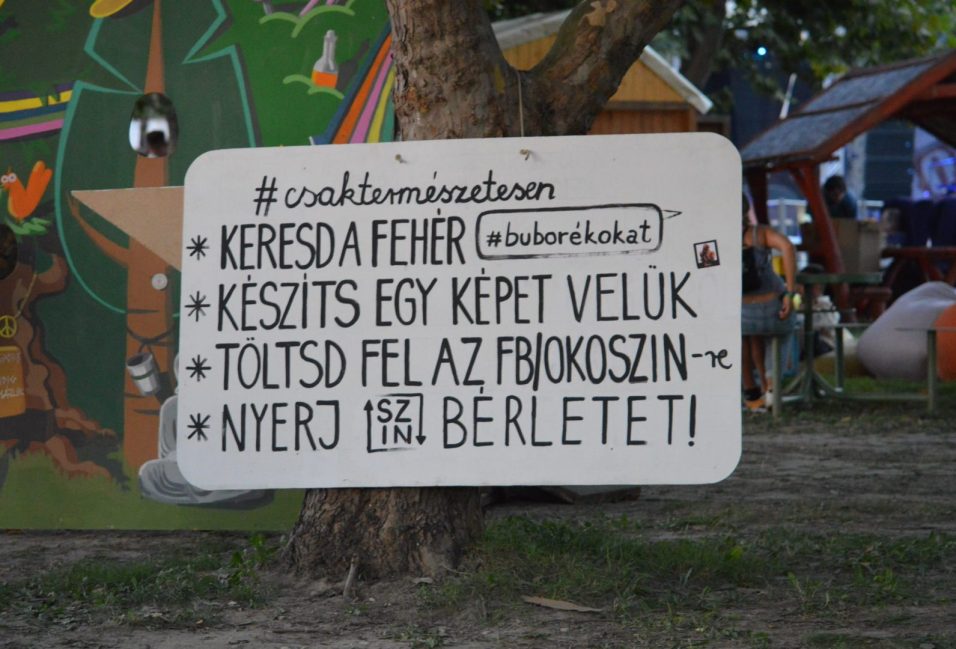 #csaktermészetesen
* KERESD A FEHÉR #buborékokat
* KÉSZÍTS EGY KÉPET VELÜK
* TÖLTSD FEL AZ FB/OKOSZIN-re
* NYERJ SZIN BÉRLETET!